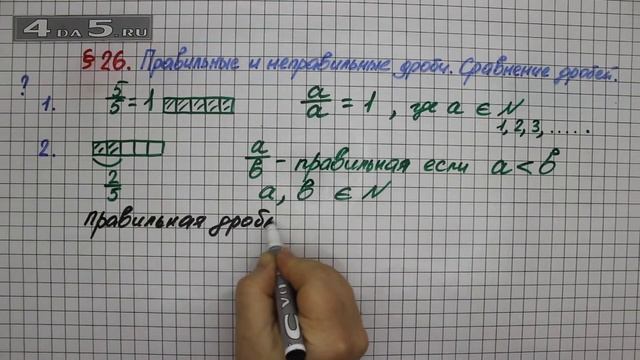 4 DA 5.RU
§ 26. Правильные и неправильные дроби. Сравнение дробей.
?
1. 5/5 = 1 a/a = 1, где a ∈ N
1, 2, 3, .....
2. a/b - правильная если a < b
2/5 a, b ∈ N
правильная дробь